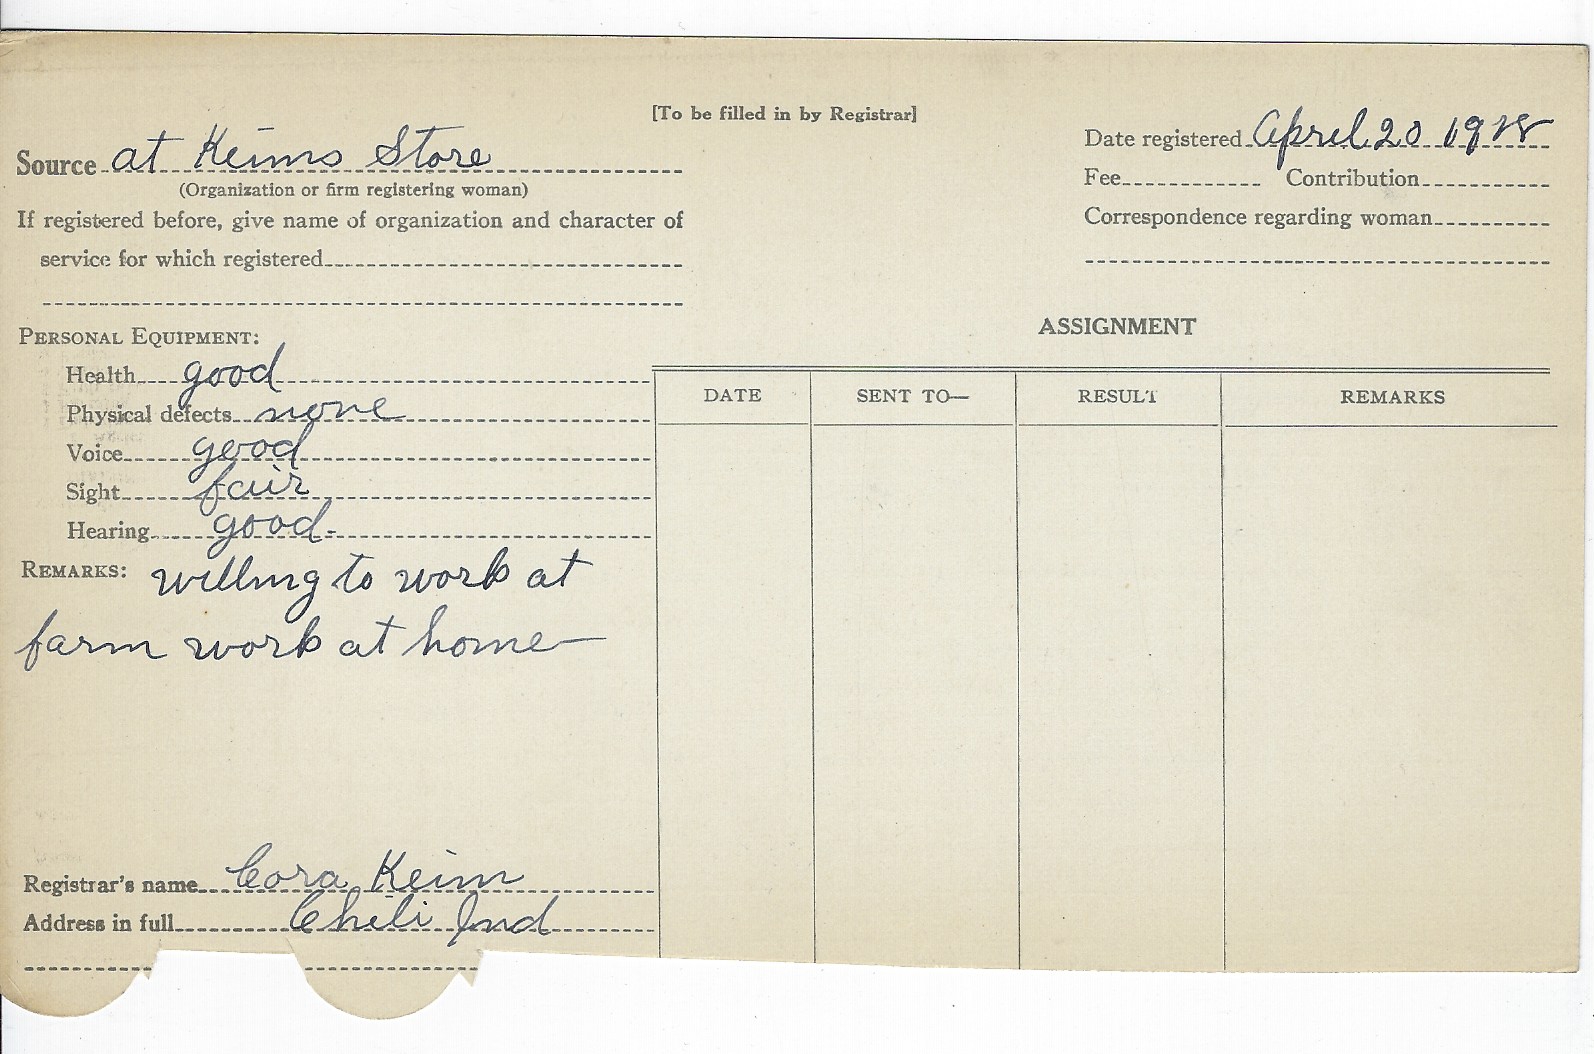 [To be filled in by Registrar]
Source at Keims Store
(Organization or firm registering woman)
If registered before, give name of organization and character of
service for which registered
Date registered April 20 1918
Fee Contribution
Correspondence regarding woman
PERSONAL EQUIPMENT:
Health good
Physical defects none
Voice good
Sight fair
Hearing good-
REMARKS: willing to work at
farm work at home
Registrar's name Cora Keim
Address in full Chili Ind
ASSIGNMENT
DATE SENT TO— RESULT REMARKS